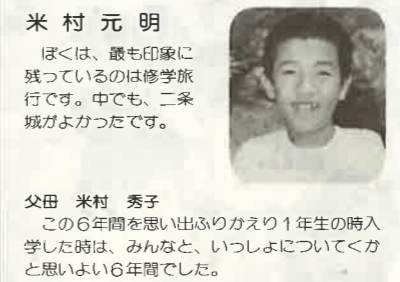 米村元明
ぼくは、最も印象に
残っているのは修学旅
行です。中でも、二条
城がよかったです。
父母　米村　秀子
この６年間を思い出ふりかえり１年生の時入
学した時は、みんなと、いっしょについてくか
と思いよい６年間でした。